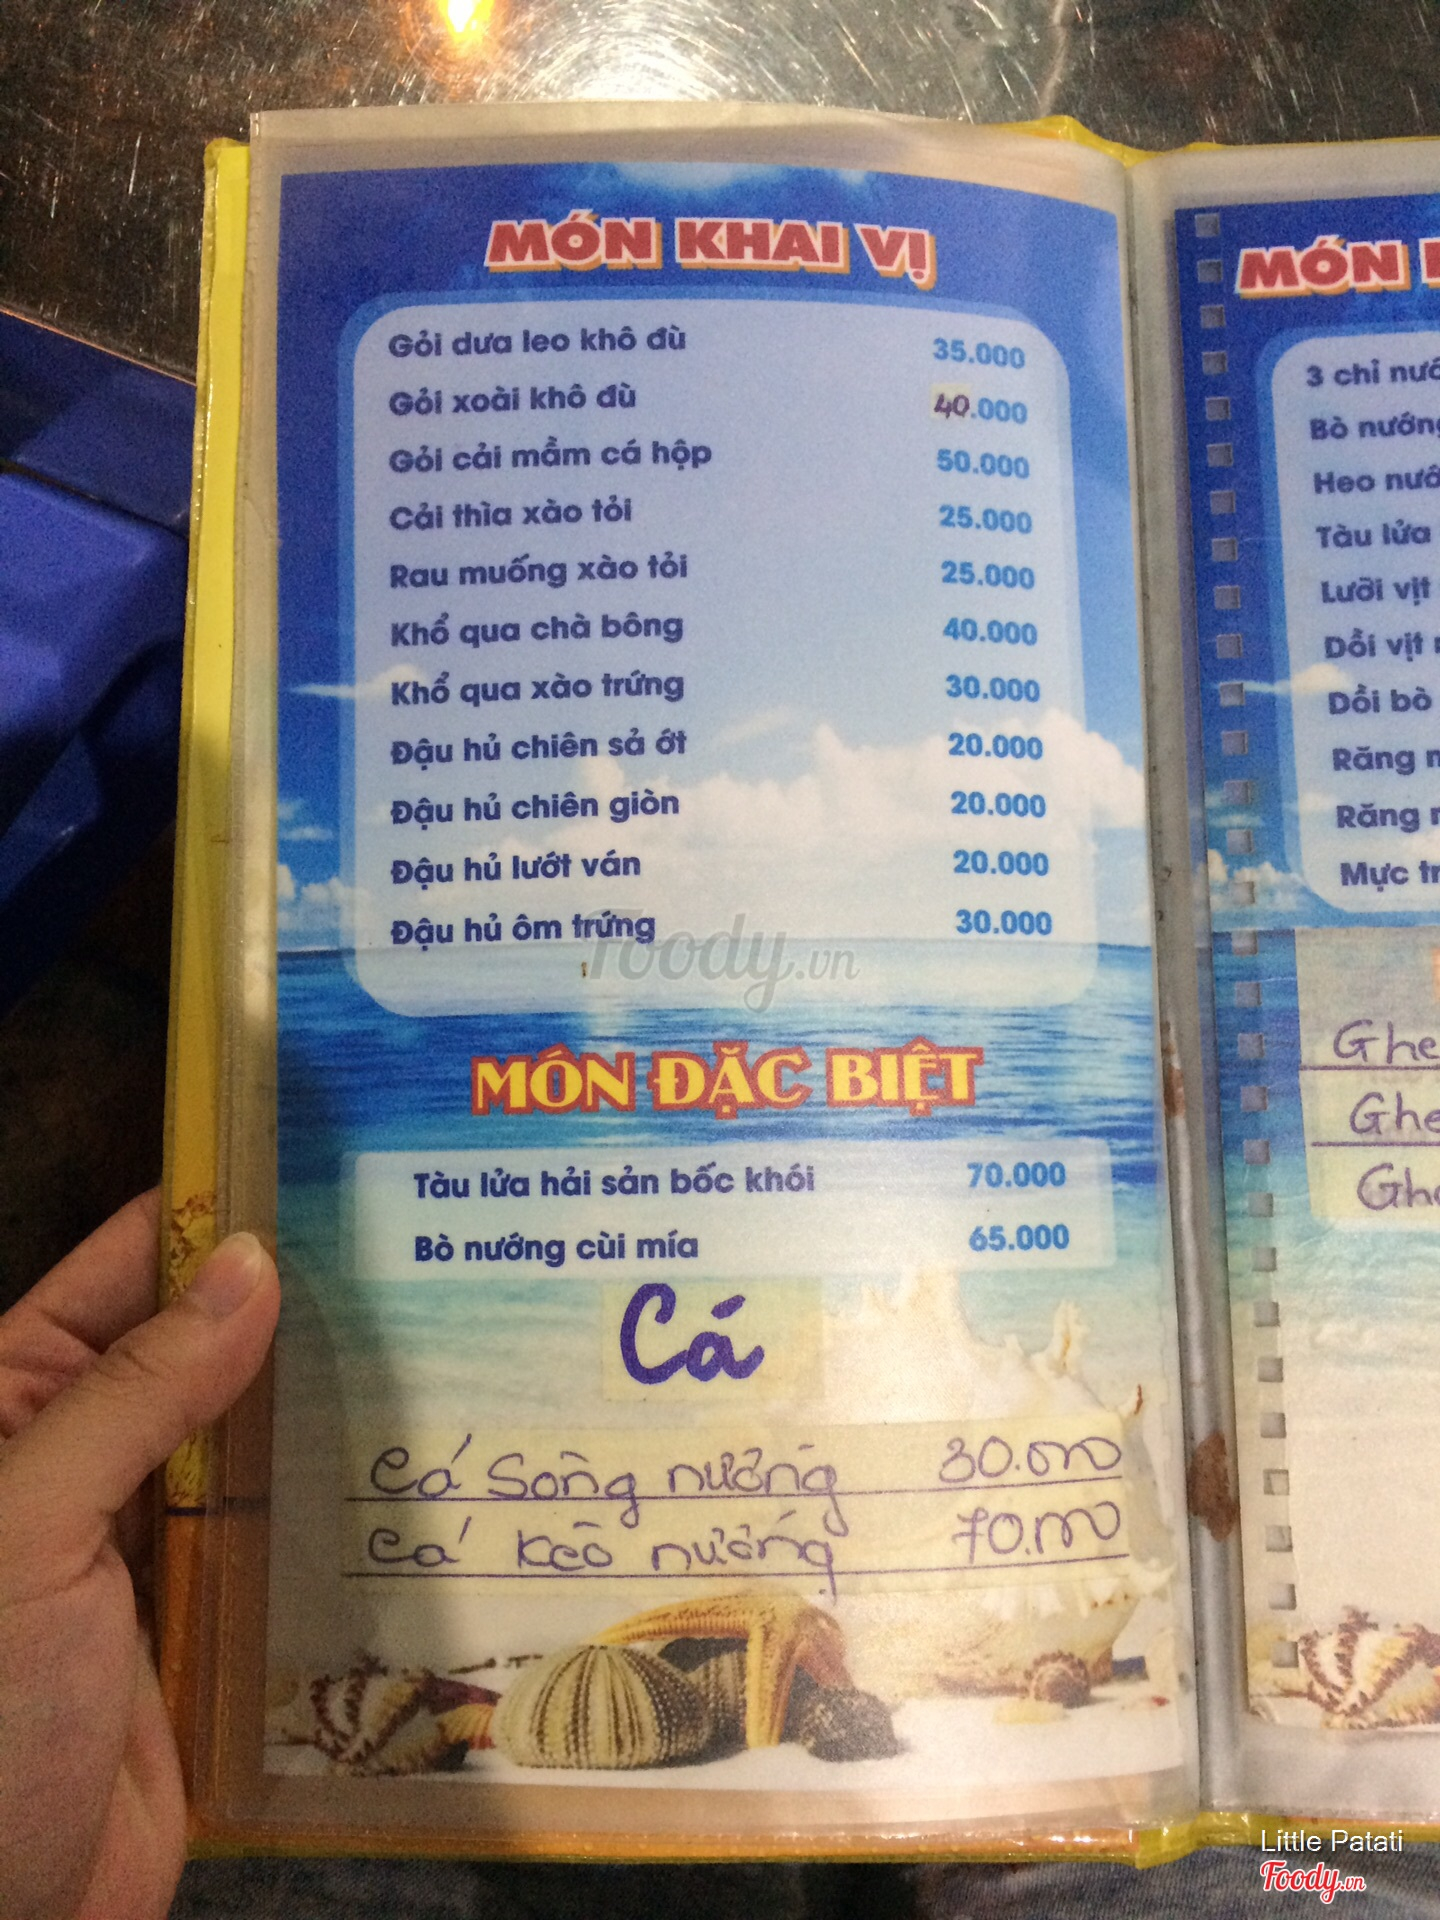 MÓN KHAI VỊ
Gỏi dưa leo khô đù 35.000
Gỏi xoài khô đù 40.000
Gỏi cải mầm cá hộp 50.000
Cải thìa xào tỏi 25.000
Rau muống xào tỏi 25.000
Khổ qua chà bông 40.000
Khổ qua xào trứng 30.000
Đậu hủ chiên sả ớt 20.000
Đậu hủ chiên giòn 20.000
Đậu hủ lướt ván 20.000
Đậu hủ ôm trứng 30.000
Foody.vn
MÓN ĐẶC BIỆT
Tàu lửa hải sản bốc khói 70.000
Bò nướng cùi mía 65.000
Cá
Cá Sông nướng 30.000
Cá Kèo nướng 70.000
MÓN
3 chỉ
Bò
Heo
Tàu lửa
Lưỡi vịt
Dồi vịt
Dồi bò
Răng
Răng
Mực
Little Patati
Foody.vn